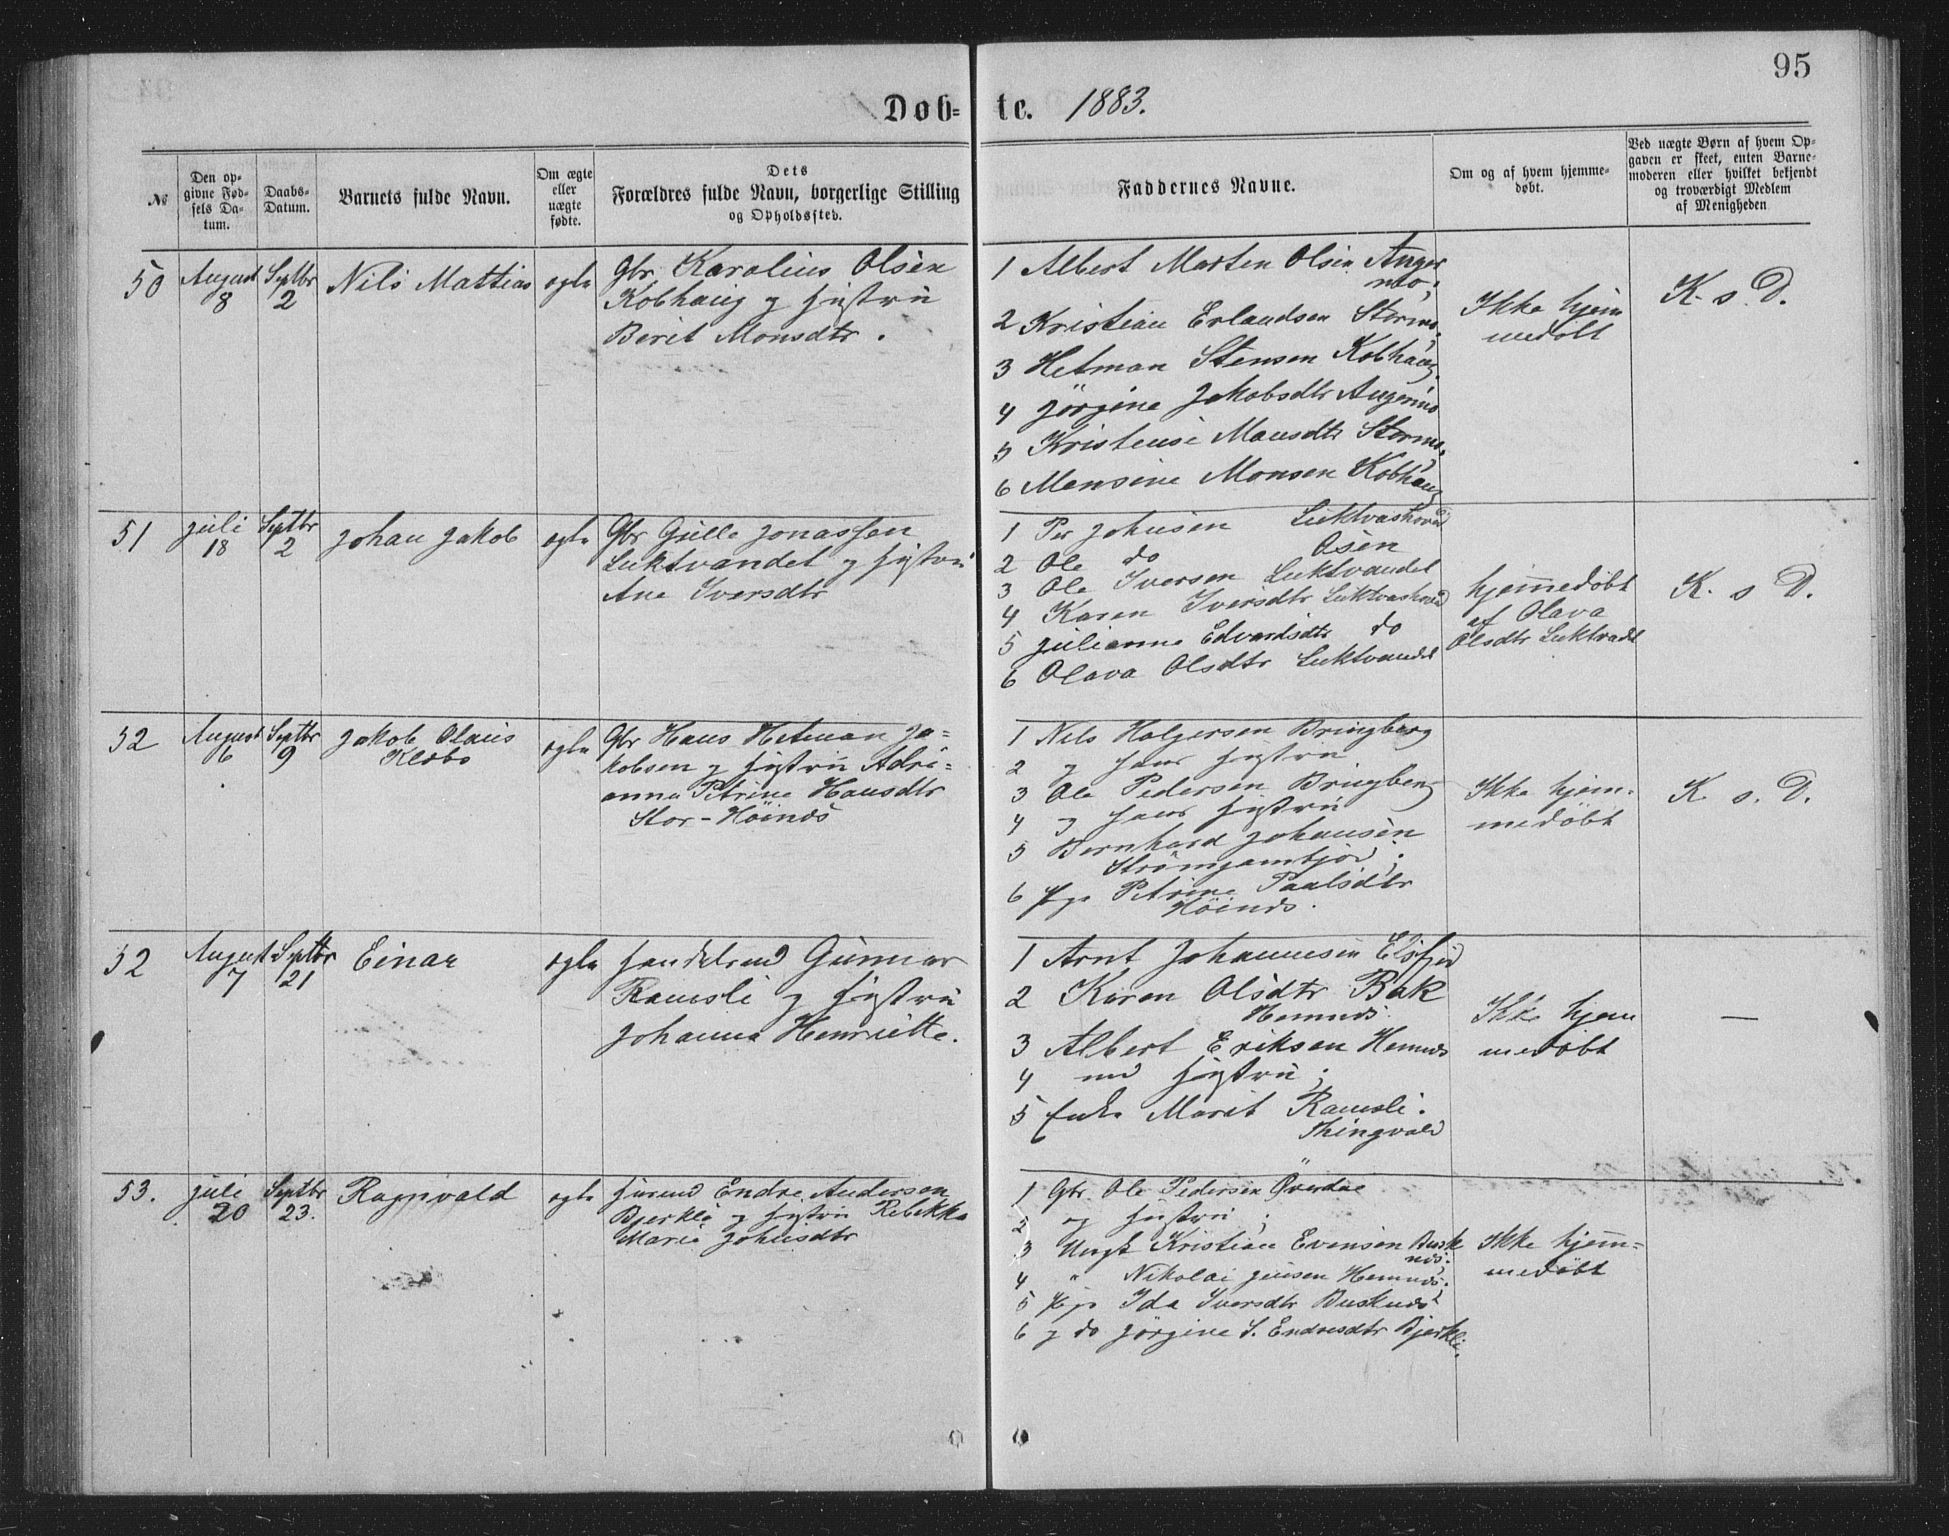 95
Døb= te. 1883.
No
Den op-
givne Fød-
sels Da-
tum.
Daabs-
Datum.
Barnets fulde Navn.
Om ægte
eller
uægte
fødte.
Dets
Forældres fulde Navn, borgerlige Stilling
og Opholdssted.
Faddernes Navne.
Om og af hvem hjemme-
døbt.
Ved uægte Børn af hvem Op-
gaven er skeet, enten Barne-
moderen eller hvilket bekjendt
og troværdigt Medlem
af Menigheden
50
August
8
Septbr
2
Nils Mattias
ægte
Gbr Karolius Olsen
Kobhaug og hustru
Berit Monsdtr.
1 Albert Morten Olsen Anger
mo.
2 Kristian Erlandsen Stormo.
3 Hetman Stensen Kobhaug.
4 Jörgine Jakobsdtr Angermo
5 Kristense Mansdtr Stormo,
6 Mensine Monsen Kobhaug
Ikke hjem
medøbt
K. s. D.
51
juli
18
Septbr
2
Johan Jakob
ægte
Gbr Gulle Jonassen
Luktvandet og hustru
Ane Iversdtr
1 Per Johnsen
2 Ole do Osen
3 Ole Iversen Luktvandet
4 Karen Iversdtr
5 Julianna Edvardsdtr do
6 Olava Olsdtr Luktvandet
hjemmedøbt
af Olava
Olsdtr Luktvadt
K. s D.
52
August
6
Septbr
9
Jakob Olaus
Klæbo
ægte
Gbr Hans Hetman Ja=
kobsen og hustru Adri=
anna Petrine Hansdtr
Stor-Höinds
1 Nils Holgersen Bringberg
2 og hans hustru
3 Ole Pedersen Bringberg
4 og hans hustru
5 Bernhard Johansen
6 Pge Petrine Paalsdtr
Höinds.
Ikke hjem=
medøbt
K. s. D.
52
August
7
Septbr
21
Einar
ægte
Handelsmd Gunnar
Ramsli og hustru
Johanna Henriette.
1 Arnt Johannesen Elsfjd
2 Karen Olsdtr Bak
Hemnds.
3 Albert Eriksen Hemnds
4 md hustru;
5 Enke Marit Ramsli.
Thingvold
Ikke hjem
medøbt
—
53.
juli
20
Septbr
23.
Ragnvald
ægte
Husmd Endre Andersen
Bjerkli og hustru Rebekka
Maria Johnsdtr
1 Gbr. Ole Pedersen Överdae
2 og hustru;
3 Ungk Kristian Evensen Busk
nds.
4 " Nikolai Jensen Hemnds.
5 Pge Ida Iversdtr Busknds
6 og do Jörgine S. Endresdtr Bjerkli.
Ikke hjem=
medöbt